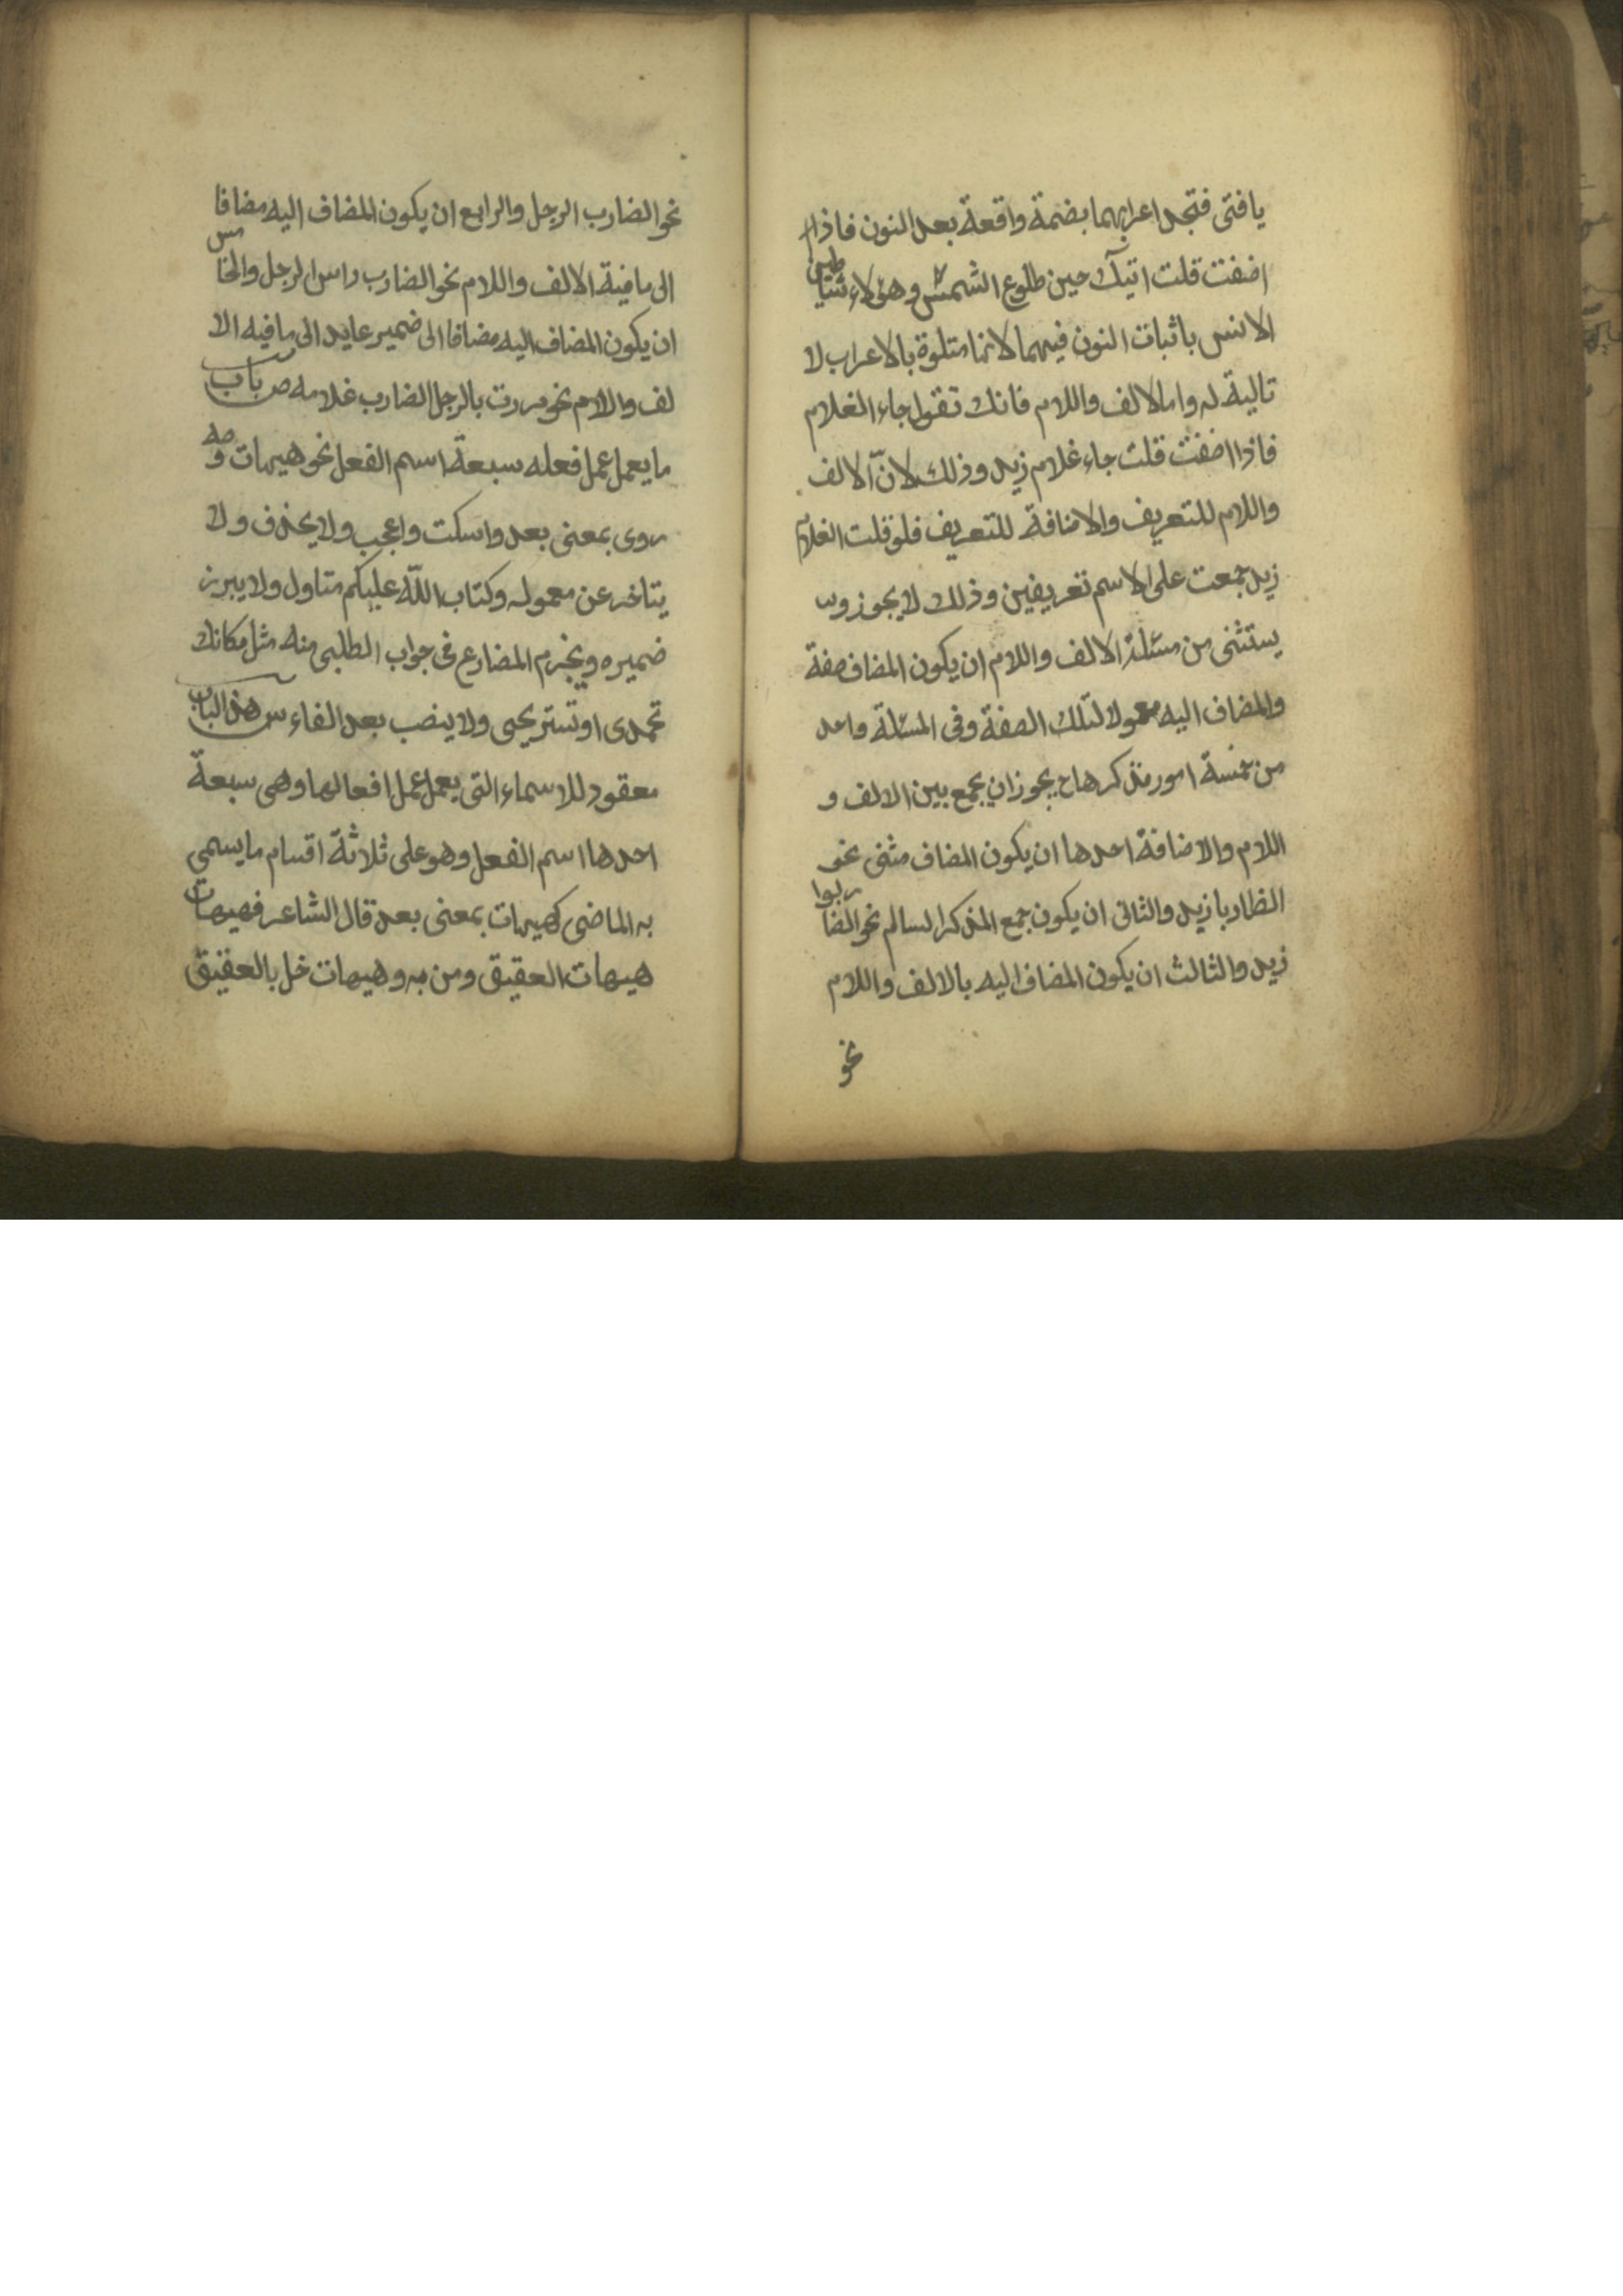 يافتى فتجد اعرابهما بضمة واقعة بعد النون فاذا
اضفت قلت اتيك حين طلوع الشمس وهؤلاء شياطين
الانس باثبات النون فيهما لانها متلوة بالاعراب لا
تالية له واما الالف واللام فانك تقول جاء الغلام
فاذا اضفت قلت جاء غلام زيد وذلك لانّ الالف
واللام للتعريف والاضافة للتعريف فلو قلت الغلام
زيد جمعت على الاسم تعريفين وذلك لا يجوز و
يستثنى من مسئلة الالف واللام ان يكون المضاف صفة
والمضاف اليه معمولا لتلك الصفة وفى المسئلة واحد
من خمسة امور تذكرها ح يجوز ان يجمع بين الالف و
اللام والاضافة احدها ان يكون المضاف مثنى نحو
الظاربا زيد والثانى ان يكون جمع المذكر السالم نحو الضاربوا
زيد والثالث ان يكون المضاف اليه بالالف واللام
نحو
نحو الضارب الرجل والرابع ان يكون المضاف اليه مضافا
الى ما فيه الالف واللام نحو الضارب راس الرجل والخامس
ان يكون المضاف اليه مضافا الى ضمير عايد الى ما فيه الا
لف والام نحو مررت بالرجل الضارب غلامه ص باب
ما يعمل عمل فعله سبعة اسم الفعل نحو هيهات وصه
ووى بمعنى بعد واسكت واعجب ولا يحذف ولا
يتاخر عن معموله وكتاب اللّه عليكم متاول ولا يبرز
ضميره ويجزم المضارع فى جواب الطلبى منه مثل مكانك
تحمدى او تستريحى ولا ينصب بعد الفاء س هذ الباب
معقود للاسماء التى يعمل عمل افعالها وهى سبعة
احدها اسم الفعل وهو على ثلاثة اقسام ما يسمى
به الماضى كهيهات بمعنى بعد قال الشاعر فهيهات
هيهات العقيق ومن به وهيهات خل بالعقيق